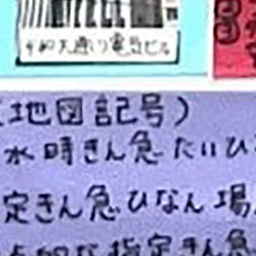 平和大通り電気ビル
(地図記号)
水時きん急たいひ
定きん急ひなん場
指定きん急